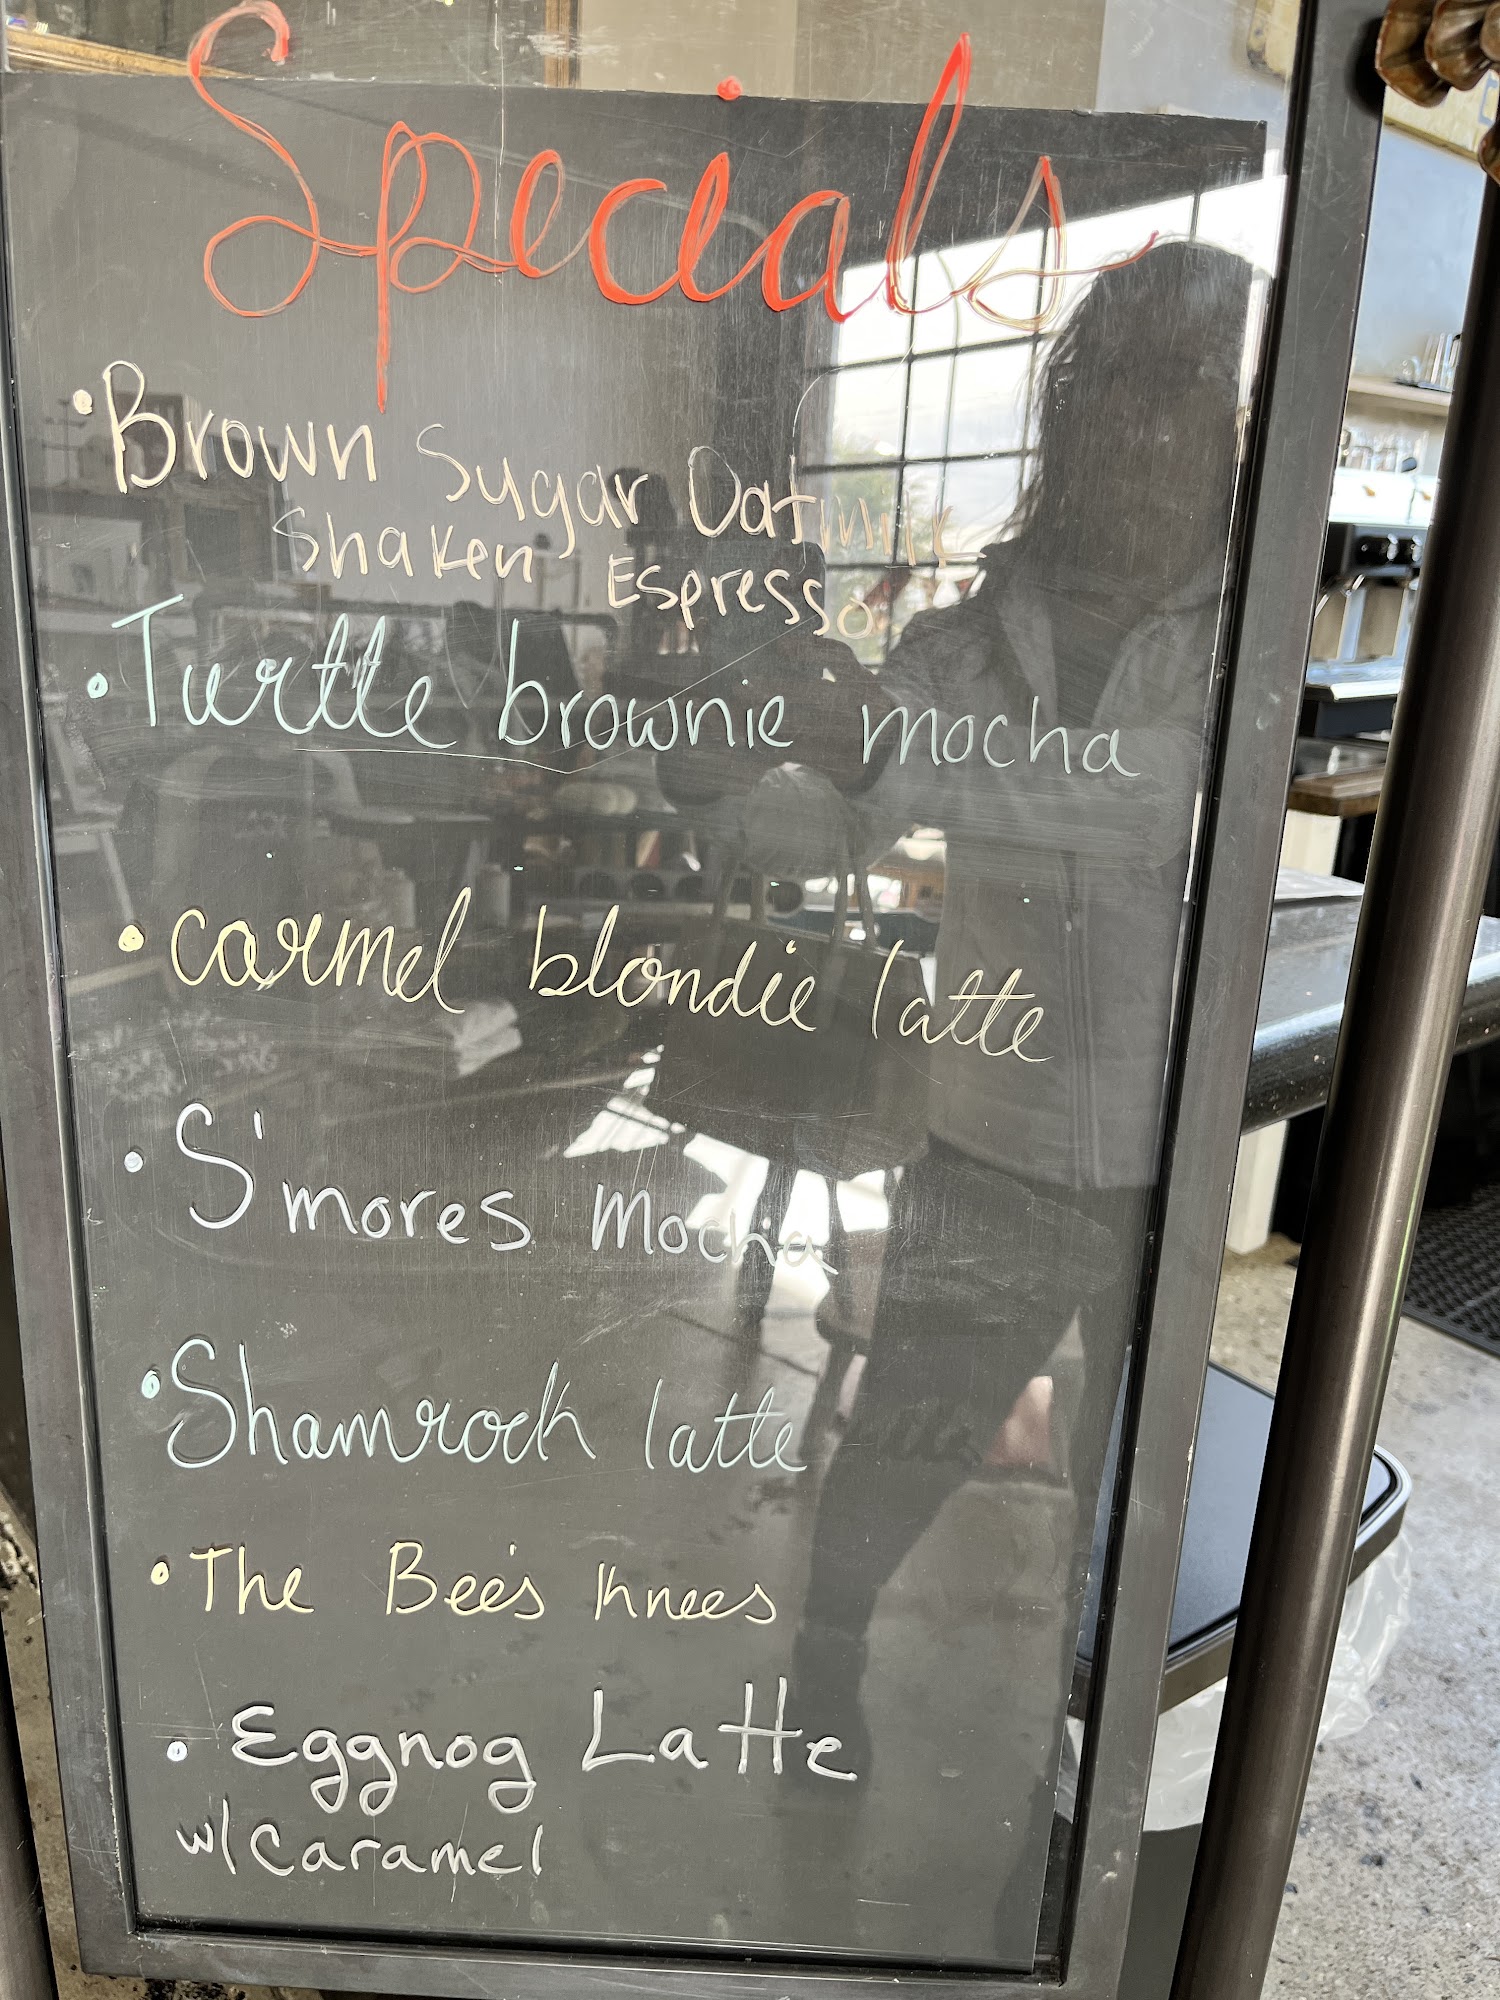 Specials
• Brown Sugar Oatmilk
Shaken Espresso
• Turtle brownie mocha
• carmel blondie latte
• S'mores Mocha
• Shamrock latte
• The Bee's knees
• Eggnog Latte
w/ Caramel